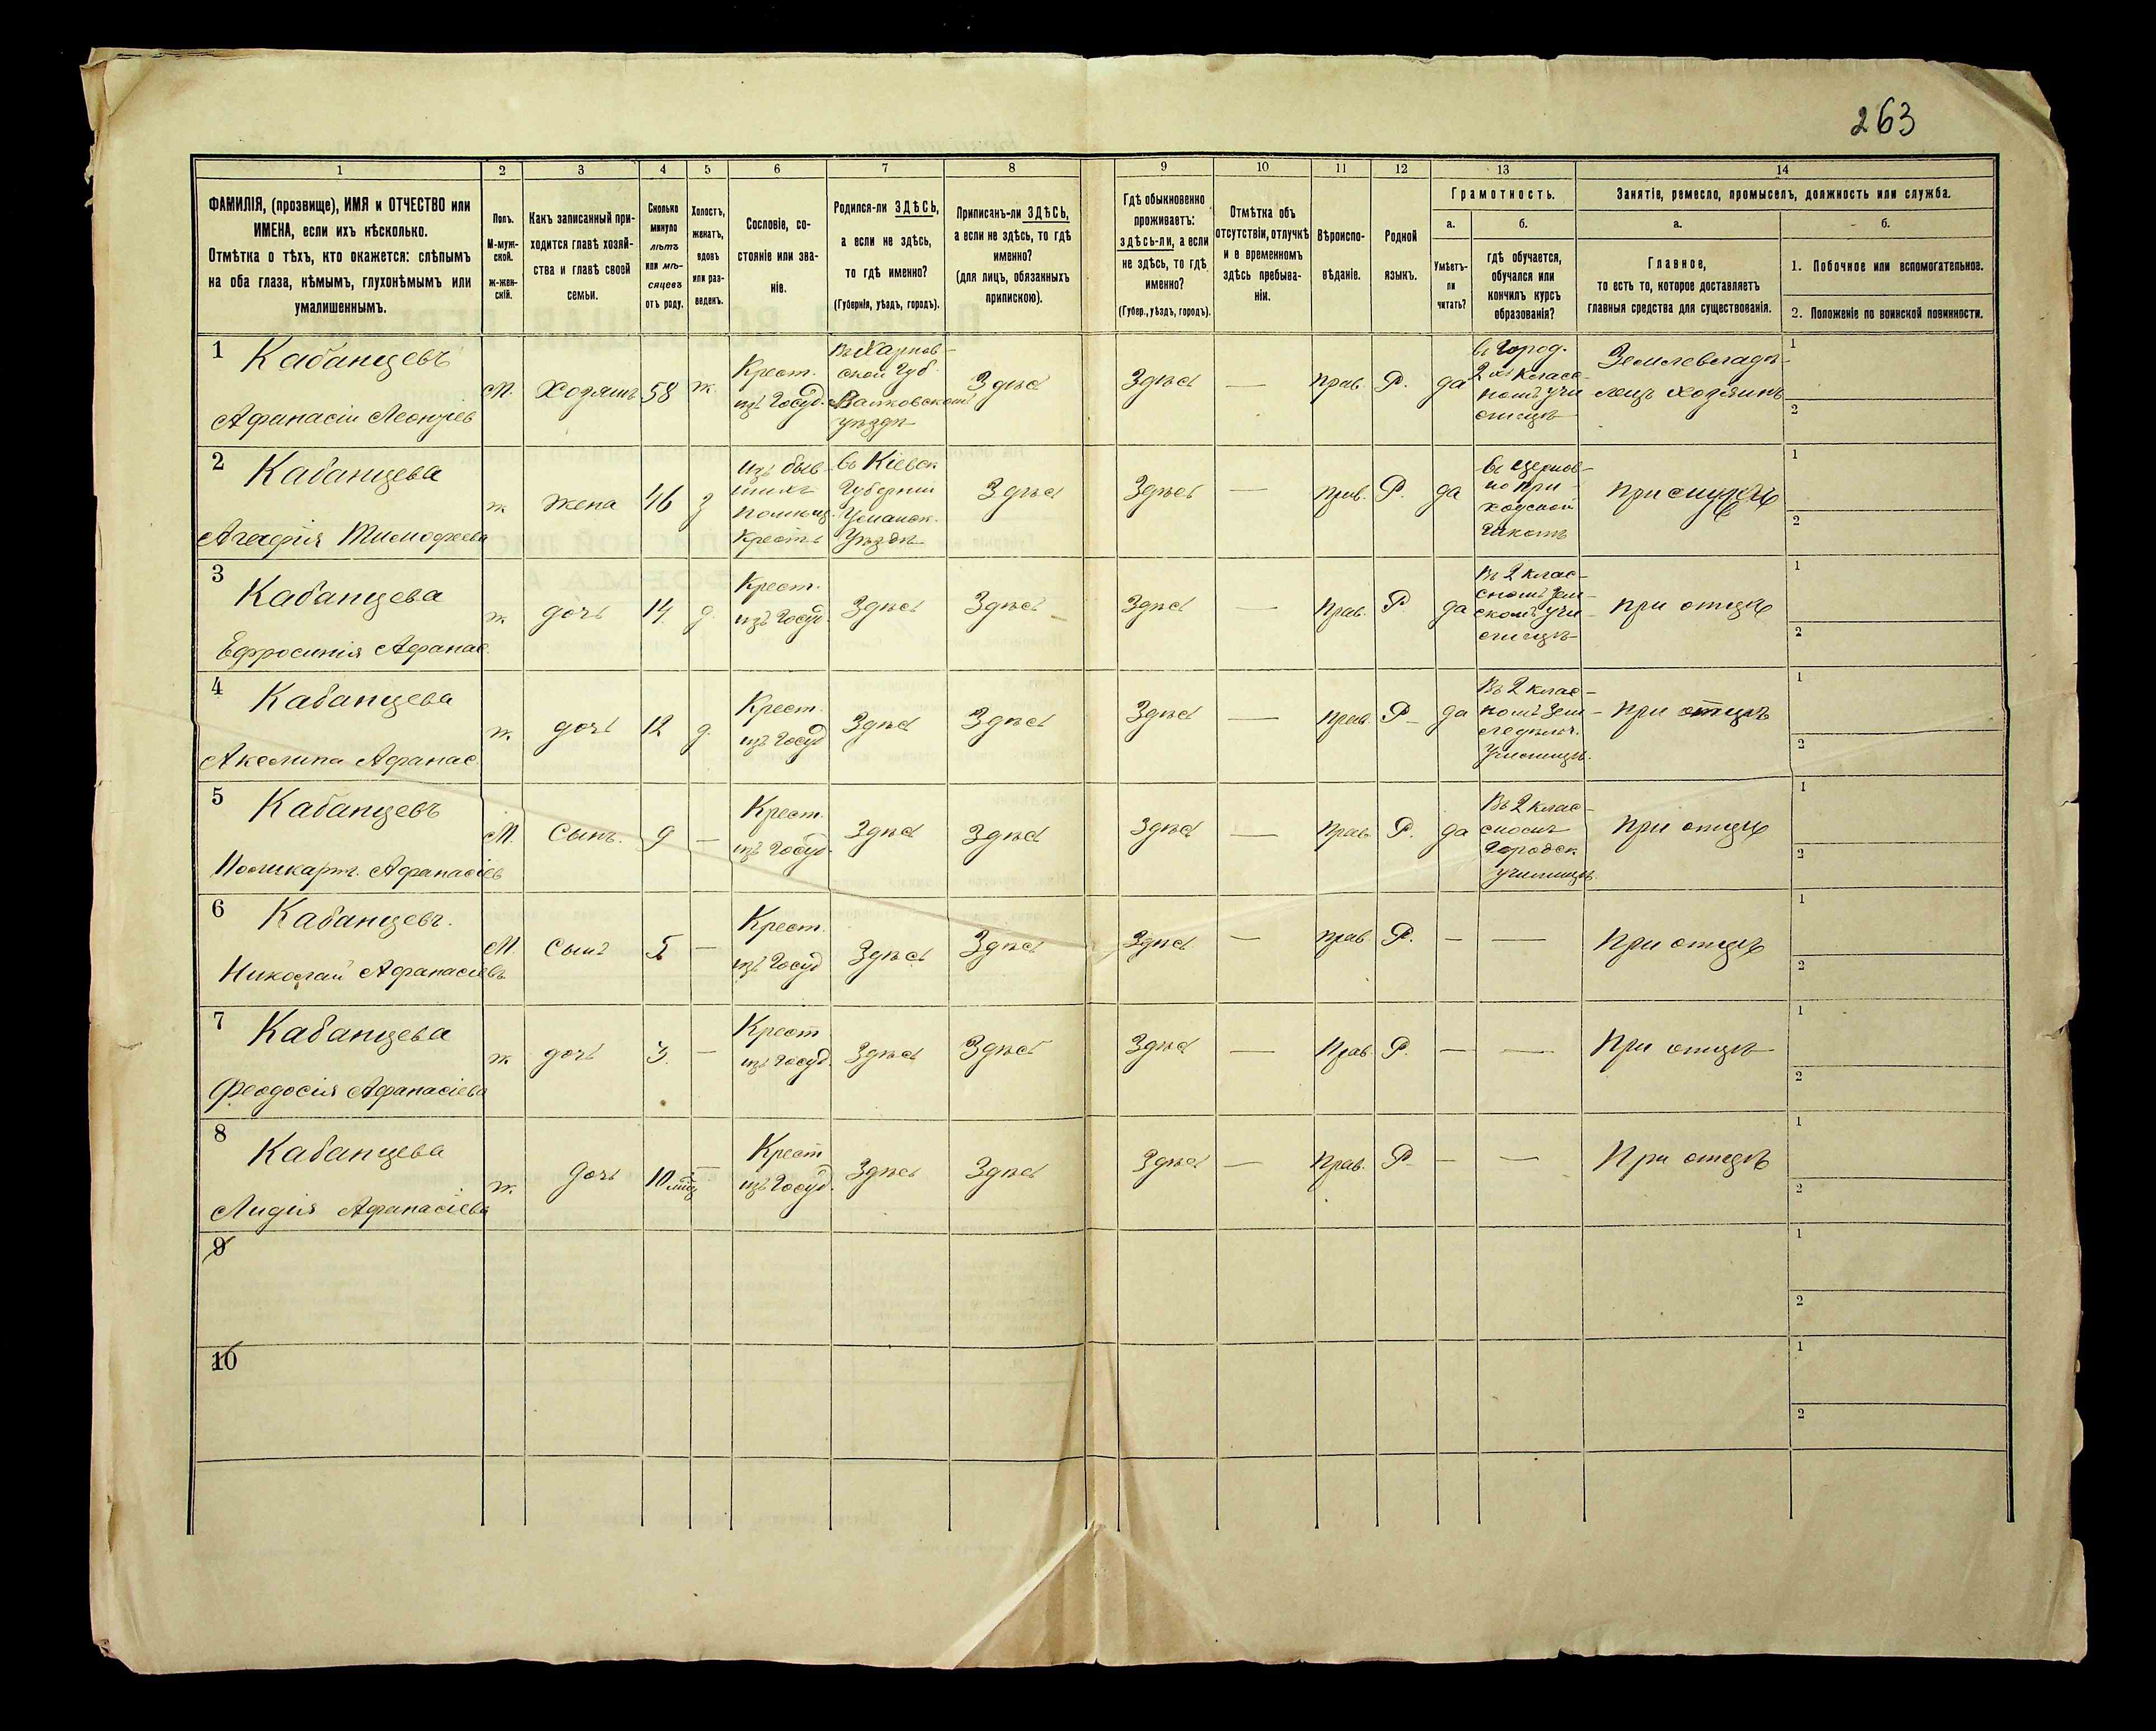 263
1 2 3 4 5 6 7 8 9 10 11 12 13 14
ФАМИЛІЯ, (прозвище), ИМЯ и ОТЧЕСТВО или
ИМЕНА, если ихъ нѣсколько.
Отмѣтка о тѣхъ, кто окажется: слѣпымъ
на оба глаза, нѣмымъ, глухонѣмымъ или
умалишеннымъ.
Полъ.
М-муж-
ской.
ж-жен-
скій.
Какъ записанный при-
ходится главѣ хозяй-
ства и главѣ своей
семьи.
Сколько
минуло
лѣтъ
или мѣ-
сяцевъ
отъ роду.
Холостъ,
женатъ,
вдовъ
или раз-
веденъ.
Сословіе, со-
стояніе или зва-
ніе.
Родился-ли ЗДѢСЬ,
а если не здѣсь,
то гдѣ именно?
(Губернія, уѣздъ, городъ).
Приписанъ-ли ЗДѢСЬ,
а если не здѣсь, то гдѣ
именно?
(для лицъ, обязанныхъ
припискою).
Гдѣ обыкновенно
проживаетъ:
здѣсь-ли, а если
не здѣсь, то гдѣ
именно?
(Губер., уѣздъ, городъ).
Отмѣтка объ
отсутствіи, отлучкѣ
и о временномъ
здѣсь пребыва-
ніи.
Вѣроиспо-
вѣданіе.
Родной
языкъ.
Грамотность.
а.
Умѣетъ-
ли
читать?
б.
гдѣ обучается,
обучался или
кончилъ курсъ
образованія?
Занятіе, ремесло, промыселъ, должность или служба.
а.
Главное,
то есть то, которое доставляетъ
главныя средства для существованія.
б.
1. Побочное или вспомогательное.
2. Положеніе по воинской повинности.
1
Кабанцевъ
Афанасій Леонтіев
М.
Хозяинъ
58
ж.
Крест.
изъ Госуд.
Въ Харков-
ской Губ.
Валковскомъ
уѣздѣ
Здѣсь
Здѣсь
—
Прав.
Р.
да
въ Город.
2хъ класс-
номъ учи
лищѣ
Землевладѣ-
лецъ хозяинъ
1
2
2
Кабанцева
Агафія Тимофеева
ж
жена
46
з
изъ быв-
шихъ
помѣщ.
Крестъ
въ Кіевск
Губерніи
Уманск.
Уѣздѣ
Здѣсь
Здѣсь
—
Прав.
Р.
да
въ церков-
но при-
ходской
школѣ
при мужѣ
1
2
3
Кабанцева
Ефросинія Афанас.
ж
дочь
14
д.
Крест.
изъ Госуд.
Здѣсь
Здѣсь
Здѣсь
—
Прав.
Р.
да
Въ 2 клас-
скомъ учи-
лищѣ
при отцѣ
1
2
4
Кабанцева
Акелина Афанас.
ж.
дочь
12
д.
Крест.
изъ Госуд
Здѣсь
Здѣсь
Здѣсь
—
Прав.
Р.
да
Въ 2 клас-
номъ Зем-
ледѣльч.
Училищѣ.
при отцѣ
1
2
5
Кабанцевъ
Поликарпъ. Афанасіев
М.
Сынъ.
9
—
Крест.
изъ Госуд.
Здѣсь
Здѣсь
Здѣсь
—
Прав
Р.
да
Въ 2 клас-
сномъ
Городск
училищѣ.
при отцѣ
1
2
6
Кабанцевъ.
Николай Афанасіевъ
М.
Сынъ
5
—
Крест.
изъ Госуд
Здѣсь
Здѣсь
Здѣсь
—
прав
Р.
—
—
При отцѣ
1
2
7
Кабанцева
Феодосія Афанасіева
ж
дочь
3.
—
Крест
изъ Госуд.
Здѣсь
Здѣсь
Здѣсь
—
Прав.
Р.
—
—
При отцѣ
1
2
8
Кабанцева
Лидія Афанасіева
ж.
Дочь
10 мѣц
—
Крест
изъ Госуд.
Здѣсь
Здѣсь
Здѣсь
—
Прав.
Р
—
—
При отцѣ
1
2
9
1
2
10
1
2